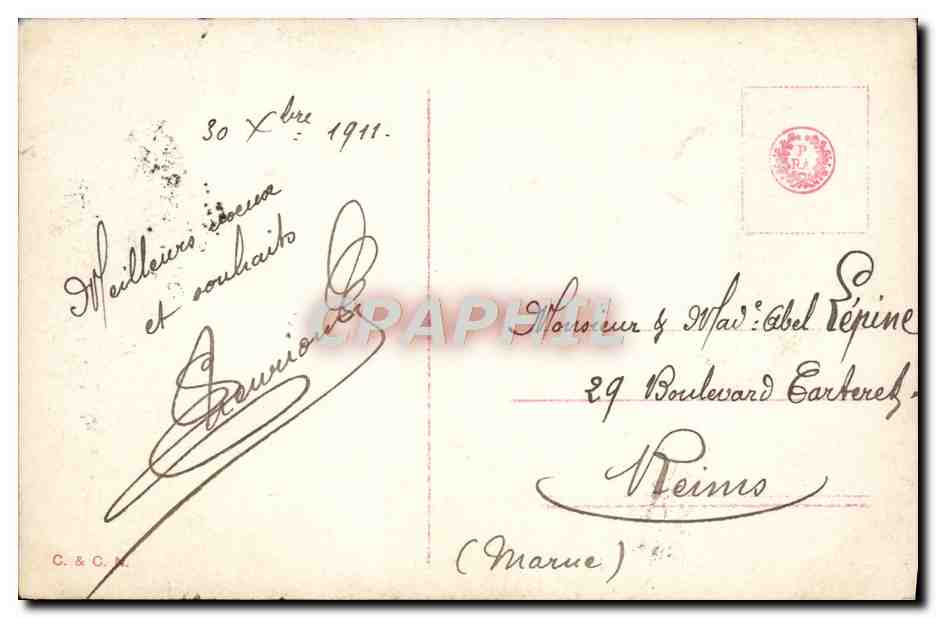 30 Xbre 1911.
Meilleurs vœux
et souhaits
Monsieur & Mad^e. Abel Lépine
29 Boulevard Carteret.
Reims
(Marne)
CPARAPHIL
P
RA
C. & C. N.